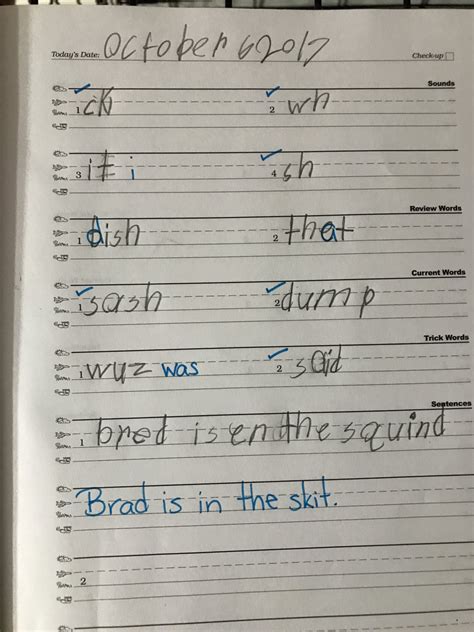 Today's Date: October 6 2017 Check-up
Sounds
1 ck 2 wh
3 it i 4 sh
Review Words
1 dish 2 that
Current Words
1 sash 2 dump
Trick Words
1 wuz was 2 said
Sentences
1 bred is en the squind
Brad is in the skit.
2